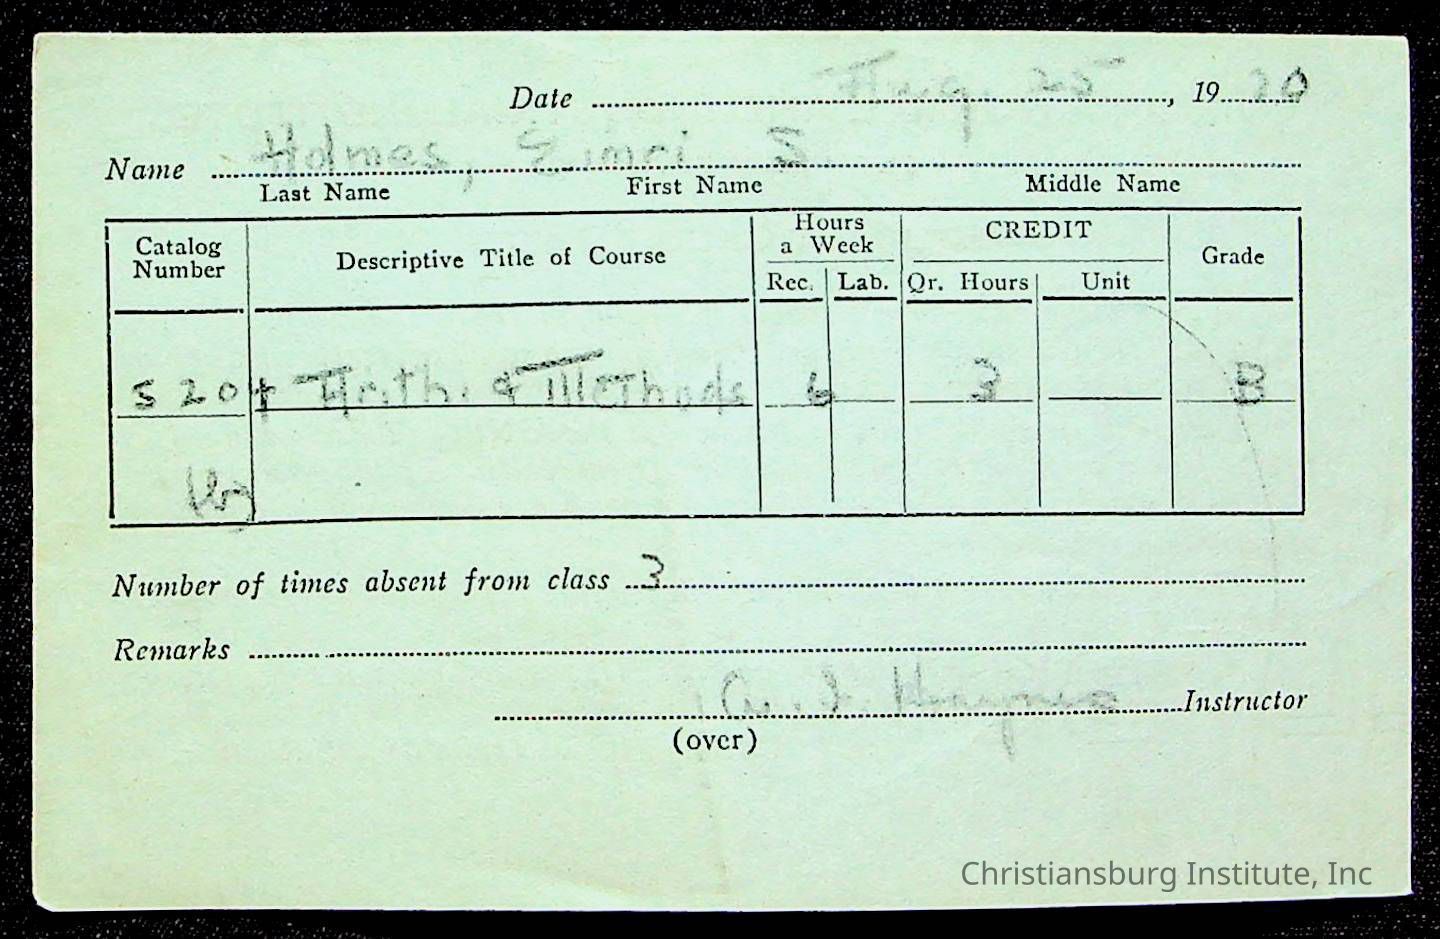 Date Aug. 25, 19 20
Name Holmes, Zimri S.
Last Name First Name Middle Name
Catalog Number Descriptive Title of Course Hours a Week CREDIT Grade
Rec. Lab. Qr. Hours Unit
S 204 Arith. & Methods 6 3 B
Number of times absent from class 3
Remarks
Haynes Instructor
(over)
Christiansburg Institute, Inc